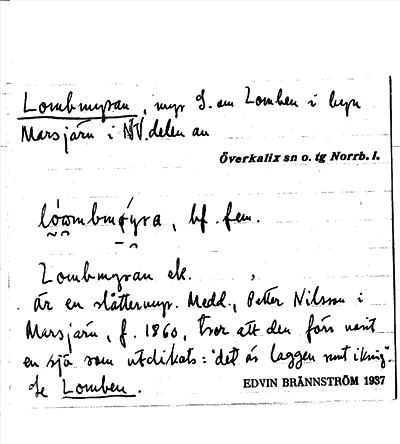 Lombmyran, myr S. om Lomben i byn
Marsjärv i NV. delen av
Överkalix sn o. tg Norrb. l.
lómbmýra, bf. fem.
Lombmyran ek.
är en slåttermyr. Medd., Petter Nilsson i
Marsjärv, f. 1860, tror att den förr varit
en sjö som utdikats: "det är laggen runt ikring".
Se Lomben.
EDVIN BRÄNNSTRÖM 1937